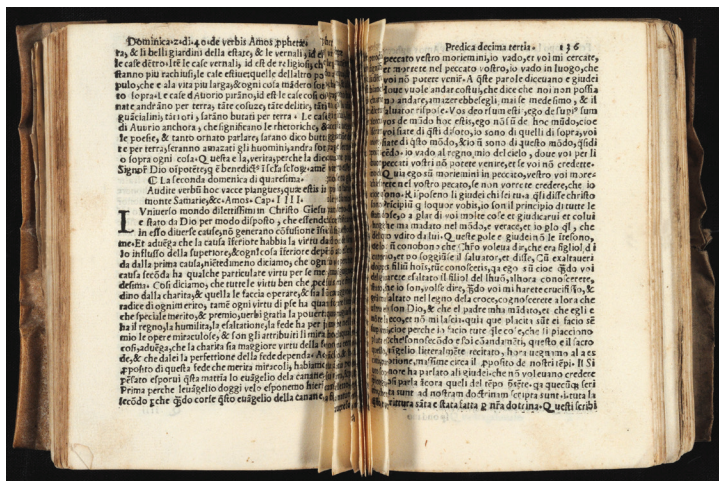 Dominica.2.di.40.de verbis Amos
ra, & li belli giardini della estate, & le vernali, id
le case dẽtro. Itẽ le case vernali, id est de religiosi, ch
stanno piu rachiusi, le case estiue: quelle dellaltro po
pulo, che e ala vita piu larga, & ogni cosa mãdero sot
to sopra. Le case d Auorio
nate andrãno per terra, tãte cosuze, tãte delitie, tãti
guãcialini, tãti ori, sarãno butati per terra. Le case
di Auorio anchora, che significano le rhetoriche, &
le poesie, & tanto ornato parlare, sarano dico butt
te per terra, seranno amazati gli huomini, andra sot
o sopra ogni cosa. Questa e la, verita, perche la dice
Signor Dio
La seconda domenica di quaresima.
Audite verbũ hoc vacce pingues, quæ estis
monte Samarie, &c. Amos. Cap. IIII.
LVniuerso mondo dilettissimi in Christo Giesu
e stato da Dio per modo disposto, che essendo
in esso diuerse cause, nõ generano cõfusione
me. Et aduẽga che la causa iferiore habbia la virtu
lo influsso della superiore, & ogni cosa iferiore
da dalla prima causa, niẽtedimeno diciamo, che ogni
causa secõda ha qualche particulare virtu per se me
desima. Cosi diciamo, che tutte le virtu ben che
dino dalla charita, & quella le faccia operare, &
radice di ogni merito, tamẽ ogni virtu di
che speciale merito, & premio, uerbi gratia la pouert
ha il regno, la humilita, la esaltatione, la fede ha per
mio le opere miraculose, & son gli attribuiti li
cosi, aduẽga, che la charita sia maggiore virtu della
de, & che dalei la perfettione della fede depende.
pposito di questa fede che merita miracoli, habiam
pẽsato esporui qsta matria lo euãgelio dela canane
Prima perche leuãgelio doggi velo esponemo
secõdo che corse qsto euãgelio della canane
Predica decima tertia. 136
peccato vestro moriemini, io vado, et voi mi cercate,
et morrete nel peccato vostro, io vado in luogo, che
voi nõ potete venir. A qste parole diceuano e giudei
doue vuole andar costui, che dice che noi non possia
no andare, amazerebbesegli mai se medesimo, & il
saluator rispose. Vos deorsum estis, ego de supis sum
vos de mũdo hoc estis, ego nõ sũ de hoc mũdo, cioe
voi siate di qsti disoto, io sono di quelli di sopra, voi
siate di qsto mũdo, & io nõ sono di questo mũdo,
io vado al regno mio del cielo, doue voi per li
peccati vostri nõ potete venire, et se voi nõ credette
Quia ego sũ moriemini in peccato, vestro voi more-
rete nel vostro pecato, se non vorrete credere, che io
sono. Risposeno li giudei chi sei tu, a qsti disse christo
qui loquor vobis, io son il principio di tutte le
cose, o a plar di voi molte cose et giudicarui et colui
che ma madato nel mũdo, e verace, et io plo ql, che
vdito da lui. Queste pole e giudei nõ le itesono,
conobono che Chro voleua dir, che era figliol, d i
et poi soggiũse il saluator, et disse, Cũ exaltauerí
filiũ hois, tũc cognoscetis, qa ego sũ cioe
esaltato il filiol del lhuõ, alhora conoscerete,
che io son, volse dire, mi harete crucifisso, &
exaltato nel legno dela croce, cognoscerete alora che
son Dio, & che el padre mha mãdato, et che egli e
meco, et nõ mi lascia, qui que placita sũt ei facio
cioe perche io facio tute qlle cose, che li piacciono
che sono secõdo e soi cõandamẽti, questo e il sacro
euãgelio litteralmẽte recitato, hora uegnamo al a es
positione, massime circa il pposito de nostri tẽpi. Il Si
gnore ha parlato ali giudei che nõ voleuano credere
parla ãcora quelli del tẽpo qa quecũq; scri
pta sunt ad nostram doctrinam scripta sunt. tuta la
scrittura sãta e stata fatta p nra dotrina. Questi scribi